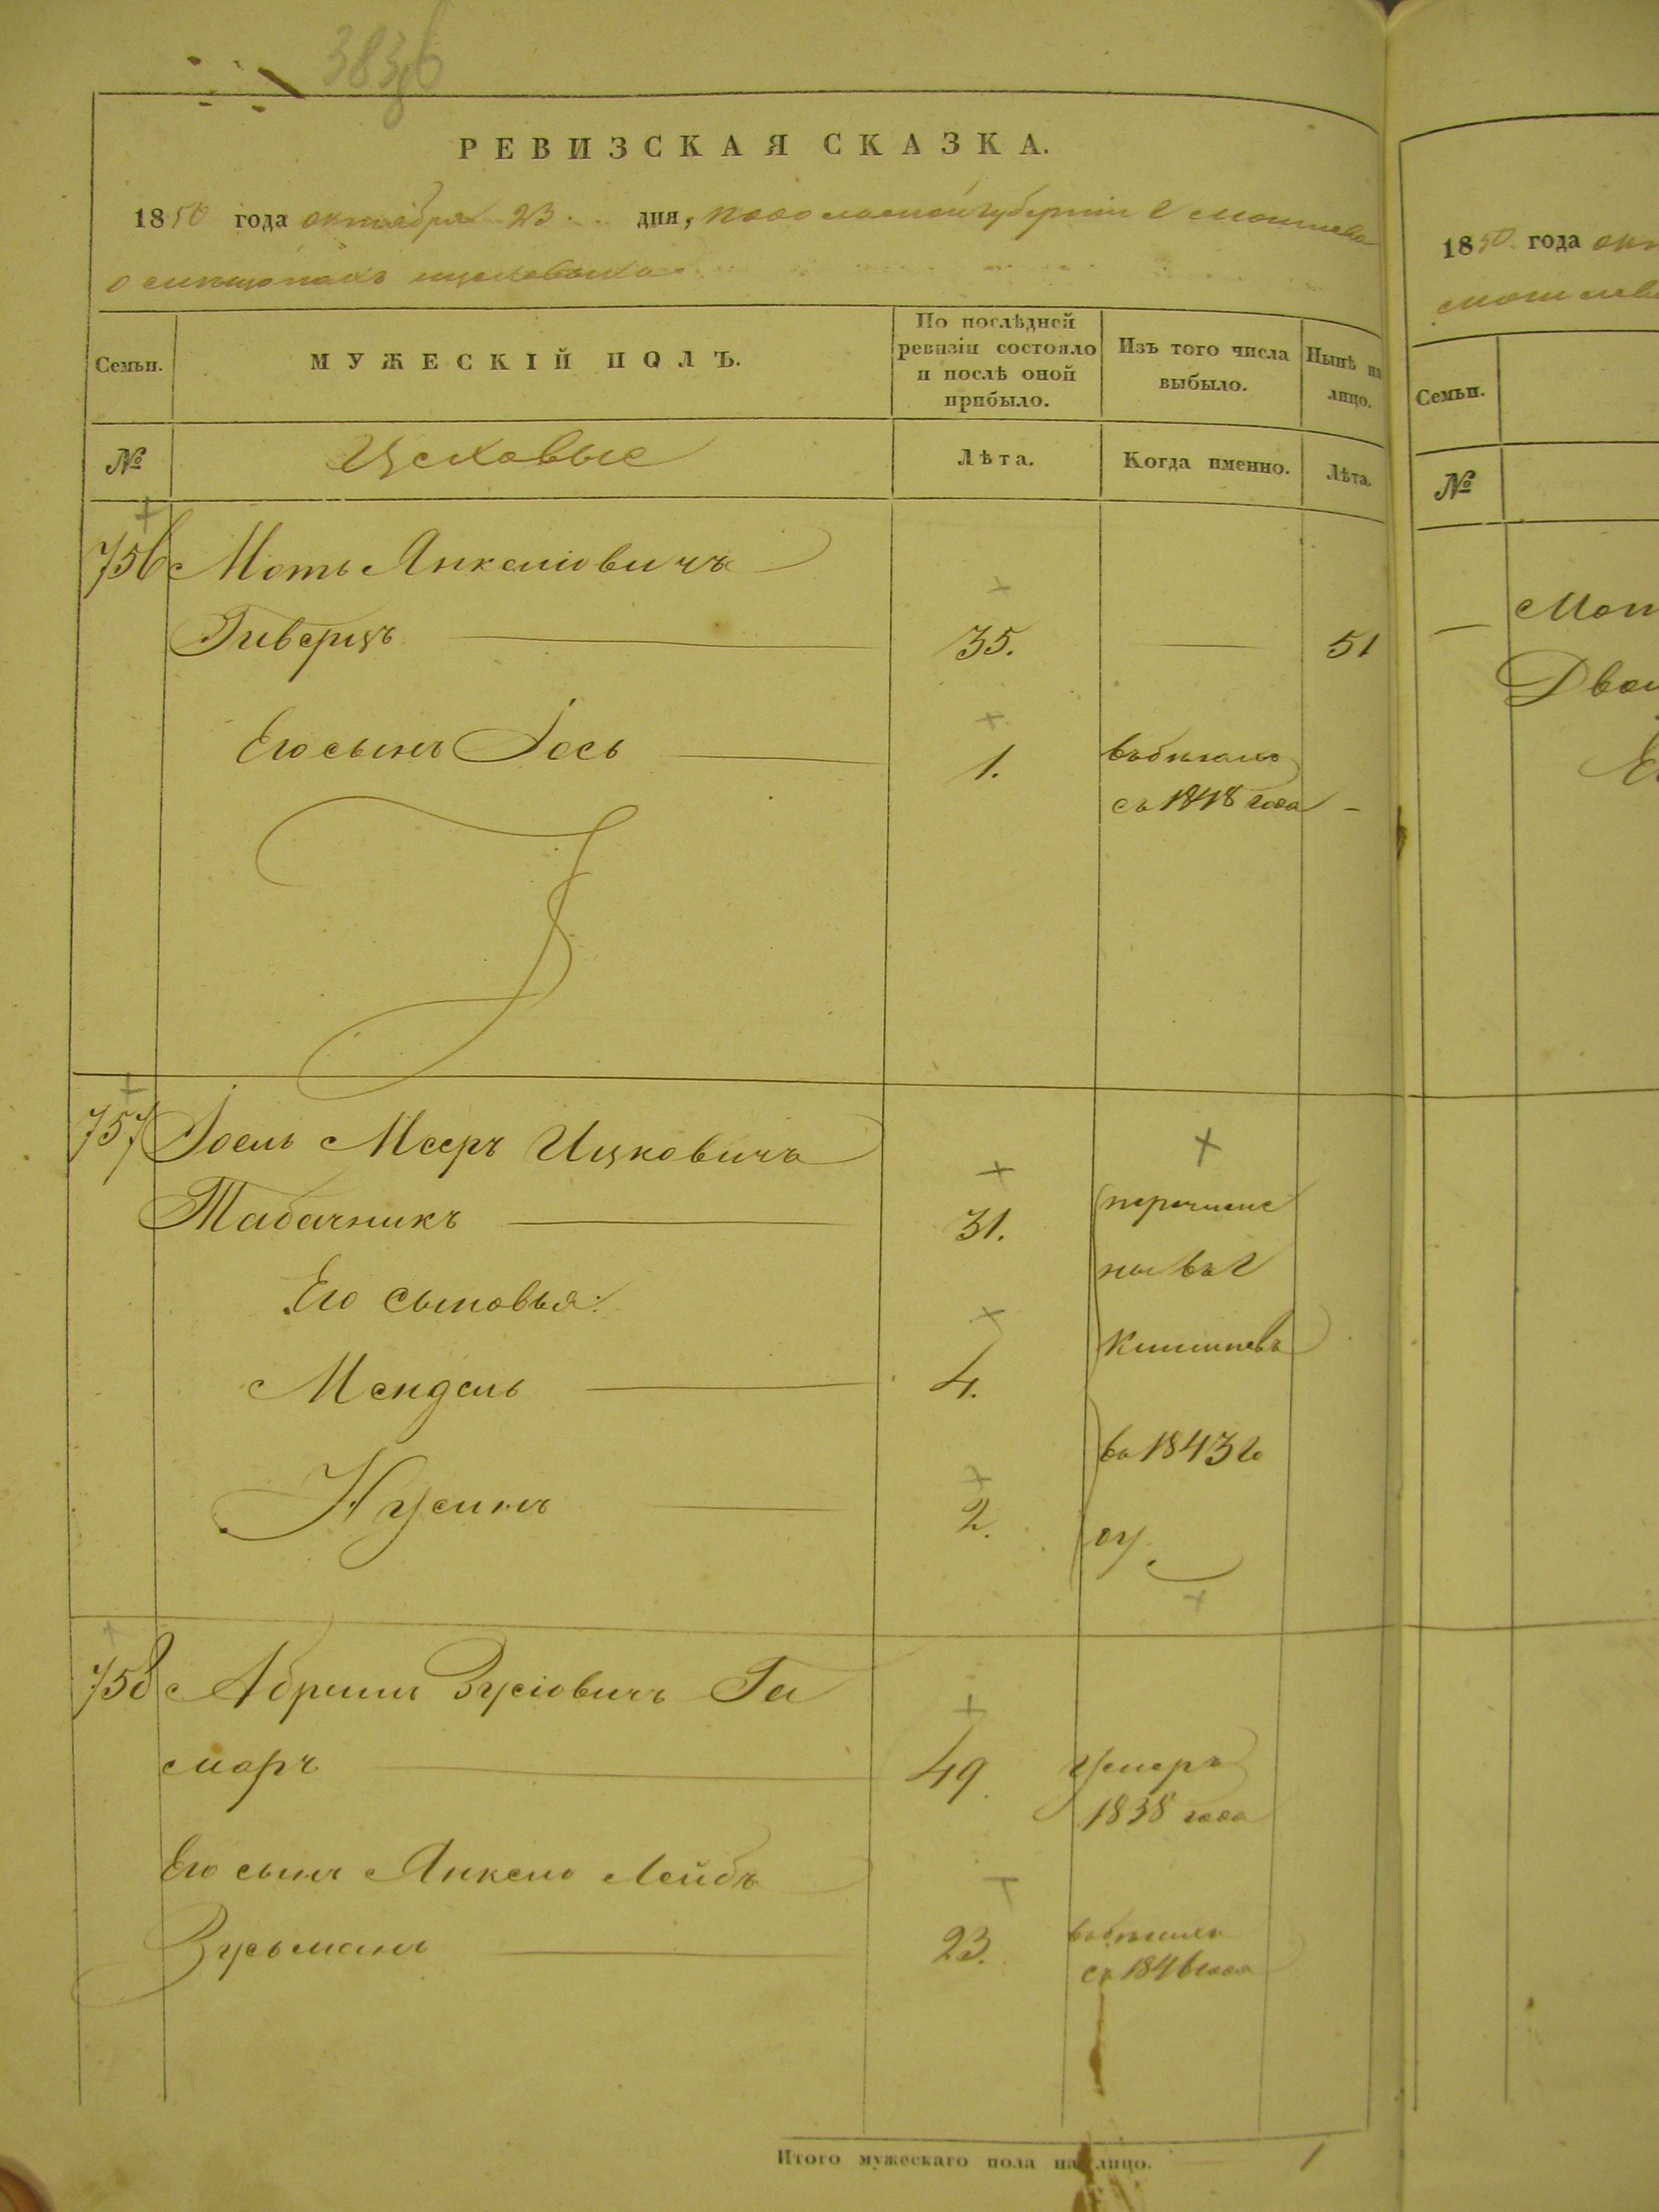 383 об
РЕВИЗСКАЯ СКАЗКА.
1850 года октября 23 дня, подольской губернии г могилева
о цеховыхъ
Семьи.
МУЖЕСКІЙ ПОЛЪ.
По послѣдней
ревизіи состояло
и послѣ оной
прибыло.
Изъ того числа
выбыло.
Нынѣ на
лицо.
№
Цеховые
Лѣта.
Когда именно.
Лѣта.
756 Моть Янкеліовичъ
Гиверцъ 35. — 51
Его сынъ Іось 1. въ бѣгахъ
съ 1848 года -
757 Іоель Мееръ Ицковичъ
Табачникъ 31. перечисле
Его сыновья: ны въ г
Кишиневъ
Мендель 4.
въ 1843 го
Нусинъ 2.
ду
758 Абрамъ Зусіовичъ Га
маръ 49. умеръ
1838 года
Его сынъ Янкель Лейбъ
Зусьманъ 23. въ бѣгахъ
съ 1846 года
Итого мужескаго пола на лицо. 1
1850 года окт
могилев
Семьи.
№
— Мот
Двои